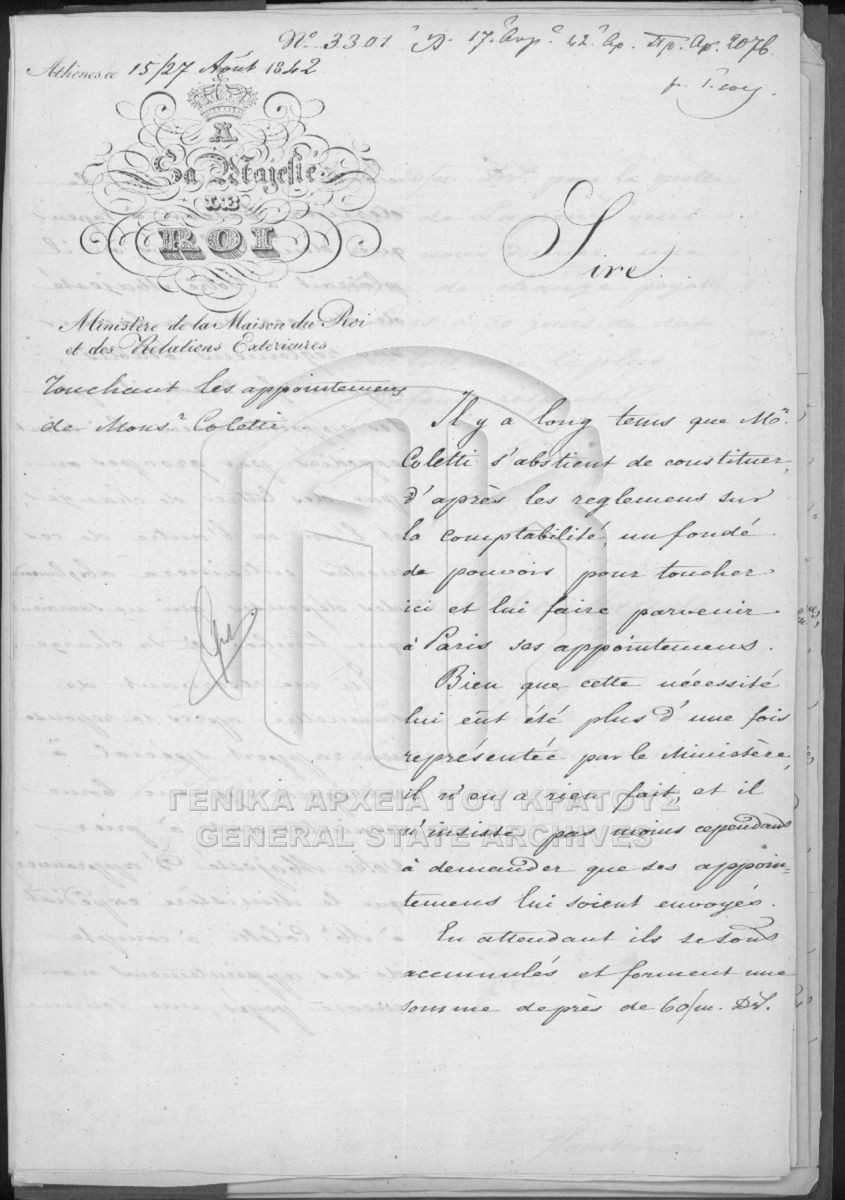 Nº 3301 17 Αυγ 42 Αρ. Πρ. Αρ. 2076.
Athènes, ce 15/27 Août 1842
A
Sa Majesté
LE
ROI
Sire
Ministère de la Maison du Roi
et des Relations Extérieures
Touchant les appointemens
de Monsr. Coletti.
Il y a long tems que Mr.
Coletti s'abstient de constituer,
d'après les reglemens sur
la comptabilité, un fondé
de pouvoirs pour toucher
ici et lui faire parvenir
à Paris ses appointemens.
Bien que cette nécessité
lui eût été plus d'une fois
représentée par le Ministère,
il n'en a rien fait, et il
n'insiste pas moins cependant
à demander que ses appoin=
temens lui soient envoyés.
En attendant ils se sont
accumulés et forment une
somme de près de 60/m. Dr.
ΓΕΝΙΚΑ ΑΡΧΕΙΑ ΤΟΥ ΚΡΑΤΟΥΣ
GENERAL STATE ARCHIVES